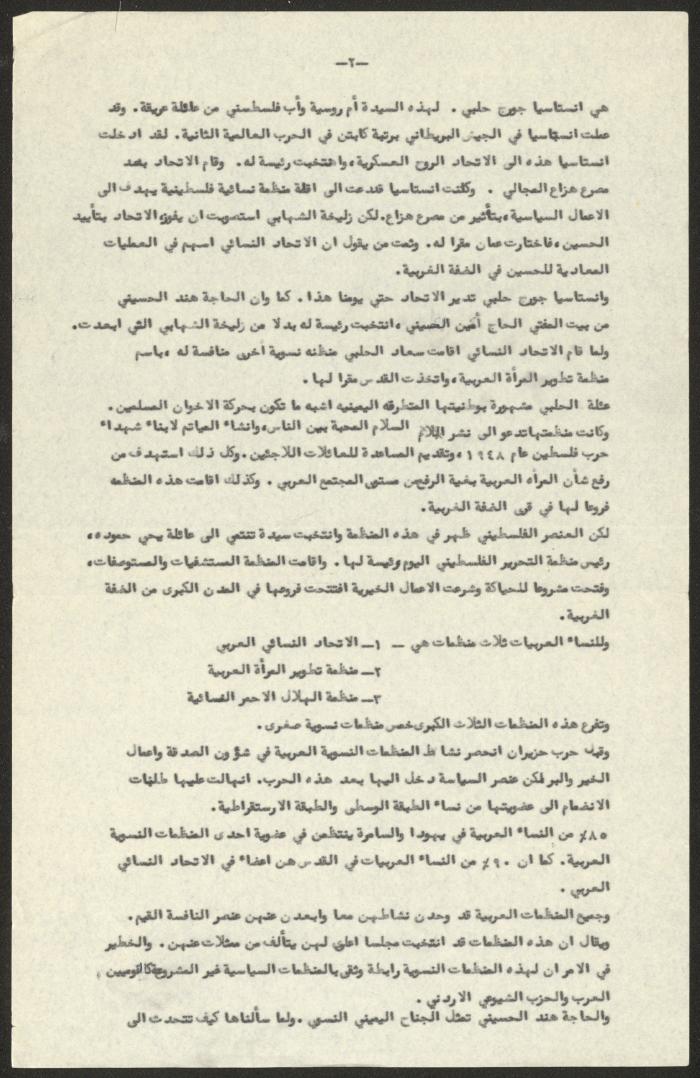 —٢—
هي انستاسيا جورج حلبي . لهذه السيدة أم روسية وأب فلسطيني من عائلة عريقة. وقد
عملت انستاسيا في الجيش البريطاني برتبة كابتن في الحرب العالمية الثانية. لقد ادخلت
انستاسيا هذه الى الاتحاد الروح العسكرية، وانتخبت رئيسة له . وقام الاتحاد بعد
مصرع هزاع المجالي . وكانت انستاسيا قد دعت الى اقامة منظمة نسائية فلسطينية يهدف الى
الاعمال السياسية، بتأثير من مصرع هزاع. لكن زليخة الشهابي استصوبت ان يفوز الاتحاد بتأييد
الحسين، فاختارت عمان مقرا له. وثمت من يقول ان الاتحاد النسائي اسهم في العمليات
المعادية للحسين في الضفة الغربية.
وانستاسيا جورج حلبي تدير الاتحاد حتى يومنا هذا . كما وان الحاجة هند الحسيني
من بيت المفتي الحاج أمين الحسيني، انتخبت رئيسة له بدلا من زليخة الشهابي التي ابعدت.
ولما قام الاتحاد النسائي اقامت سعاد الحلبي منظمه نسوية أخرى منافسة له، باسم
منظمة تطوير المرأة العربية، واتخذت القدس مقرا لها .
عئلة الحلبي مشهورة بوطنيتها المتطرفه اليمينيه اشبه ما تكون بحركة الاخوان المسلمين.
وكانت منظمتها تدعو الى نشر السلام المحبة بين الناس، وانشاء المياتم لابناء شهداء
حرب فلسطين عام ١٩٤٨، وتقديم المساعدة للعائلات اللاجئين. وكل ذلك استهدف من
رفع شأن المرأه العربية بغية الرفع من مستوى المجتمع العربي . وكذلك اقامت هذه المنظمه
فروعا لها في قرى الضفة الغربية.
لكن العنصر الفلسطيني ظهر في هذه المنظمة وانتخبت سيدة تنتمي الى عائلة يحي حموده،
رئيس منظمة التحرير الفلسطيني اليوم رئيسة لها . واقامت المنظمة المستشفيات والمستوصفات،
وفتحت مشروعا للحياكة وشرعت الاعمال الخيرية افتتحت فروعها في المدن الكبرى من الضفة
الغربية.
وللنساء العربيات ثلاث منظمات هي — ١— الاتحاد النسائي العربي
٢— منظمة تطوير المرأة العربية
٣— منظمة الهلال الاحمر النسائية
وتفرع هذه المنظمات الثلاث الكبرى خمس منظمات نسوية صغرى.
وقبل حرب حزيران انحصر نشاط المنظمات النسوية العربية في شؤون الصدقة واعمال
الخير والبر لكن عنصر السياسة دخل اليها بعد هذه الحرب. انهالت عليها طلبات
الانضمام الى عضويتها من نساء الطبقة الوسطى والطبقة الارستقراطية.
٨٥٪ من النساء العربية في يهودا والسامرة ينتظمن في عضوية احدى المنظمات النسوية
العربية. كما ان ٩٠٪ من النساء العربيات في القدس هن اعضاء في الاتحاد النسائي
العربي .
وجميع المنظمات العربية قد وحدن نشاطهن معا وابعدن عنهن عنصر النافسة القيم.
ويقال ان هذه المنظمات قد انتخبت مجلسا اعلى لهن يتألف من ممثلات عنهن. والخطير
في الامر ان لهذه المنظمات النسوية رابطة وثقى بالمنظمات السياسية غير المشروعة كالقوميين
العرب والحزب الشيوعي الاردني .
والحاجة هند الحسيني تمثل الجناح اليميني النسوي. ولما سألناها كيف تتحدث الى